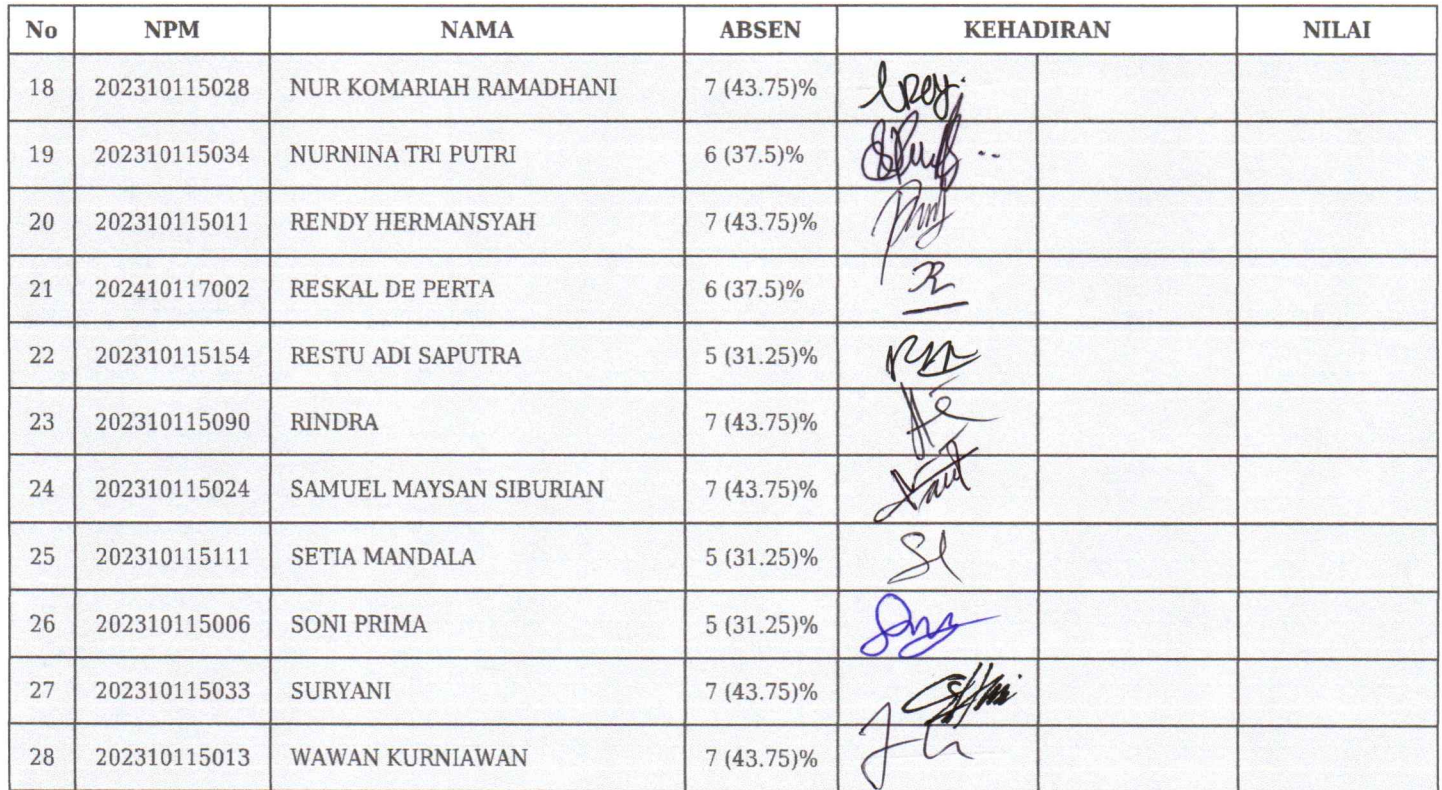 No NPM NAMA ABSEN KEHADIRAN NILAI
18 202310115028 NUR KOMARIAH RAMADHANI 7 (43.75)%
19 202310115034 NURNINA TRI PUTRI 6 (37.5)%
20 202310115011 RENDY HERMANSYAH 7 (43.75)%
21 202410117002 RESKAL DE PERTA 6 (37.5)%
22 202310115154 RESTU ADI SAPUTRA 5 (31.25)%
23 202310115090 RINDRA 7 (43.75)%
24 202310115024 SAMUEL MAYSAN SIBURIAN 7 (43.75)%
25 202310115111 SETIA MANDALA 5 (31.25)%
26 202310115006 SONI PRIMA 5 (31.25)%
27 202310115033 SURYANI 7 (43.75)%
28 202310115013 WAWAN KURNIAWAN 7 (43.75)%